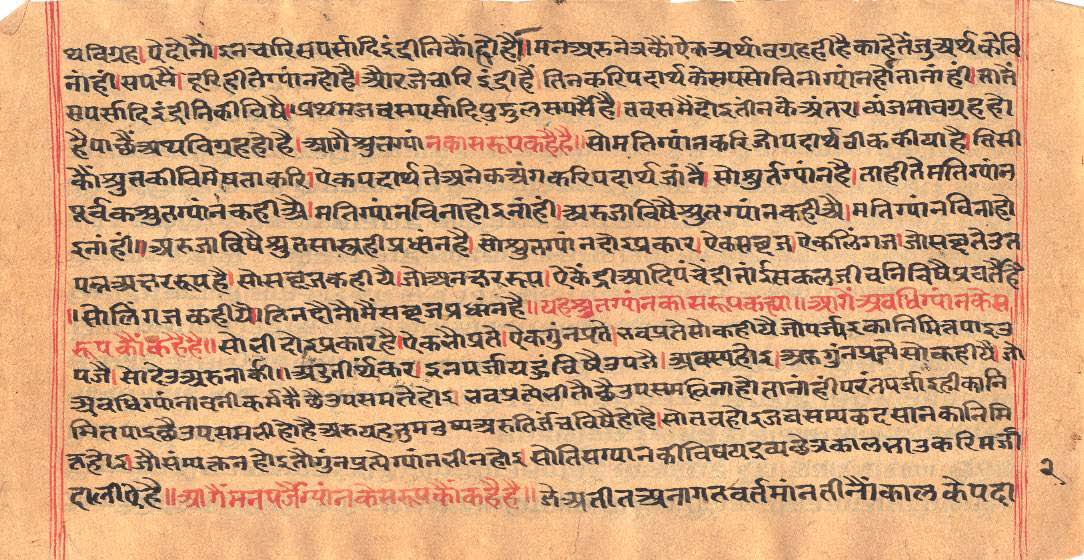 थविग्रह। पेदोनौं। इनचारिसपर्सादिइंद्रीनिकौं होहै। मनअरुनेत्रकौं ऐकअर्थावग्रहहीहै काहेतेंजुअर्थकेवि
नांहीं। सपर्सै दूरिहीतेग्पांनहोहै। औरजेचारिइंद्रीहैं तिनकरिपदार्थकेसपर्सेविनाग्पांनहोंतानांहीं। तातें
सपर्सादिइंद्रीनिकीविषै। प्रथमजबसपर्सादिपुद्गलसपर्सैहै। तबसमैदोइतीनकैअंतर। व्यंजनावग्रहहो
हैपाछैंअथविग्रहहोहै। आगैश्रुतग्पांनकासरूपकहैहै॥ सोमतिग्पांनकरिजोपदार्थठीककीयाहै। तिसी
कौंश्रुतकीविसेषताकरि। ऐकपदार्थतेअनेकअंगकरिपदार्थजांनैं। सोश्रुतग्पांनहै। ताहीतैमतिग्पांन
पूर्वकश्रुतग्पांनकहीऔ। मतिग्पांनविनाहोइनांहीं। अरुजाविषैश्रुतग्पांनकहीयै। मतिग्पांनविनाहो
इनांहीं॥ अरुजाविषैश्रुतसास्त्रहीप्रधांनहै। सोश्रुतग्पांनदोइप्रकार। ऐकसब्दज। ऐकलिंगज। जोसब्दतेउत
पन्नअक्षररूपहै। सोसब्दजकहीयै। जोअनक्षररूप। ऐकेंद्रीआदिपंचेंद्रीतांईसकलजीवनिविषैप्रवर्तैहै
। सोलिंगजकहीयै। तिनदौनौमैंसब्दजप्रधांनहै॥ यहश्रुतग्पांनकासरूपकह्या॥ आगैंअवधिग्पांनकोस
रूपकौंकहेहै॥ सोभीदोइप्रकारहै। ऐकभौप्रते। ऐकगुंनप्रते। भवप्रतेसोकहीयैजोपर्जाइकानिमितपाइउ
पजै। सोदेउअरुनार्की॥ अरुतीर्थकर। इनपर्जायहुंविषैउपजै। अवस्पहोइ। अरुगुंनप्रत्सेसोकहीयै। जो
अवधिग्पांनावर्नीकर्मकैछैउपसमतैहोइ भवप्रत्येभीतौछैउपस्मविनाहोतानांहींपरंतपर्जाइहीकानि
मितपाइछैउपसमभीहोहै अरुयहतुमनुष्यअरुतिर्जंचविषैहोहै। सोतबहोइजबसम्यकदर्सनकानिमि
तहोइ। जौसंम्यक्तनहोइतौगुंनप्रत्येग्पांनभीनहोइ सोतिसग्पानकौविषयद्रव्यछेत्रकालभाउकरिमर्जा
दालीऐहै॥ आगैंमनपर्जैग्पांनकेसरूपकौंकहैहै॥ जेअतीतअनागतवर्तमांनतीनौंकालकेपदा
२